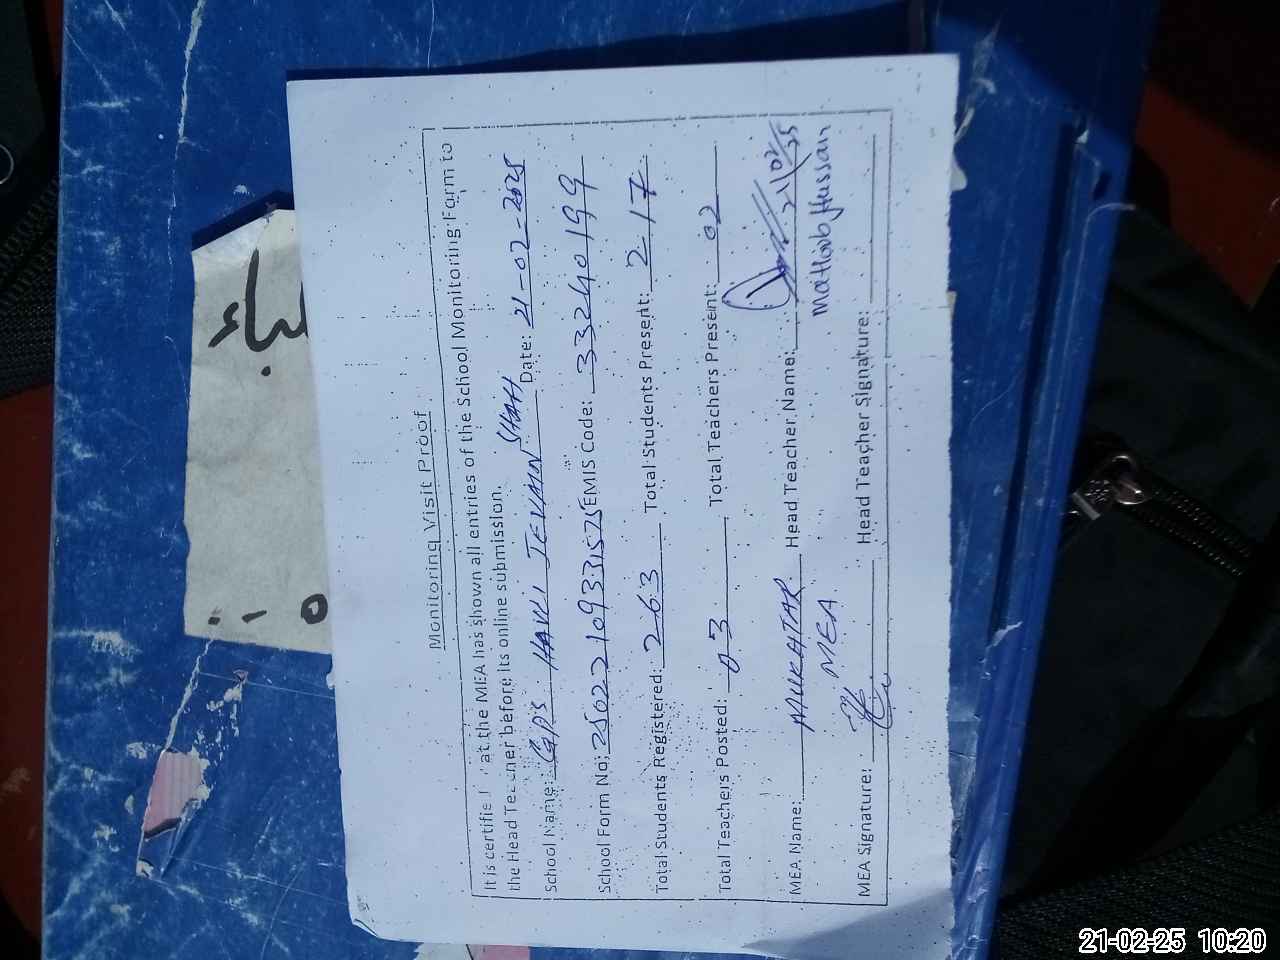 Monitoring Visit Proof
It is certified that the MEA has shown all entries of the School Monitoring Form to
the Head Teacher before its online submission.
School Name: GPS HAVELI JEVAIN SHAH Date: 21-02-2025
School Form No: 250221093315 EMIS Code: 33240199
Total Students Registered: 263 Total Students Present: 217
Total Teachers Posted: 03 Total Teachers Present: 02
MEA Name: MUKHTAR Head Teacher Name: 21/02/25
MEA Hussan
MEA Signature: Head Teacher Signature:
21-02-25 10:20